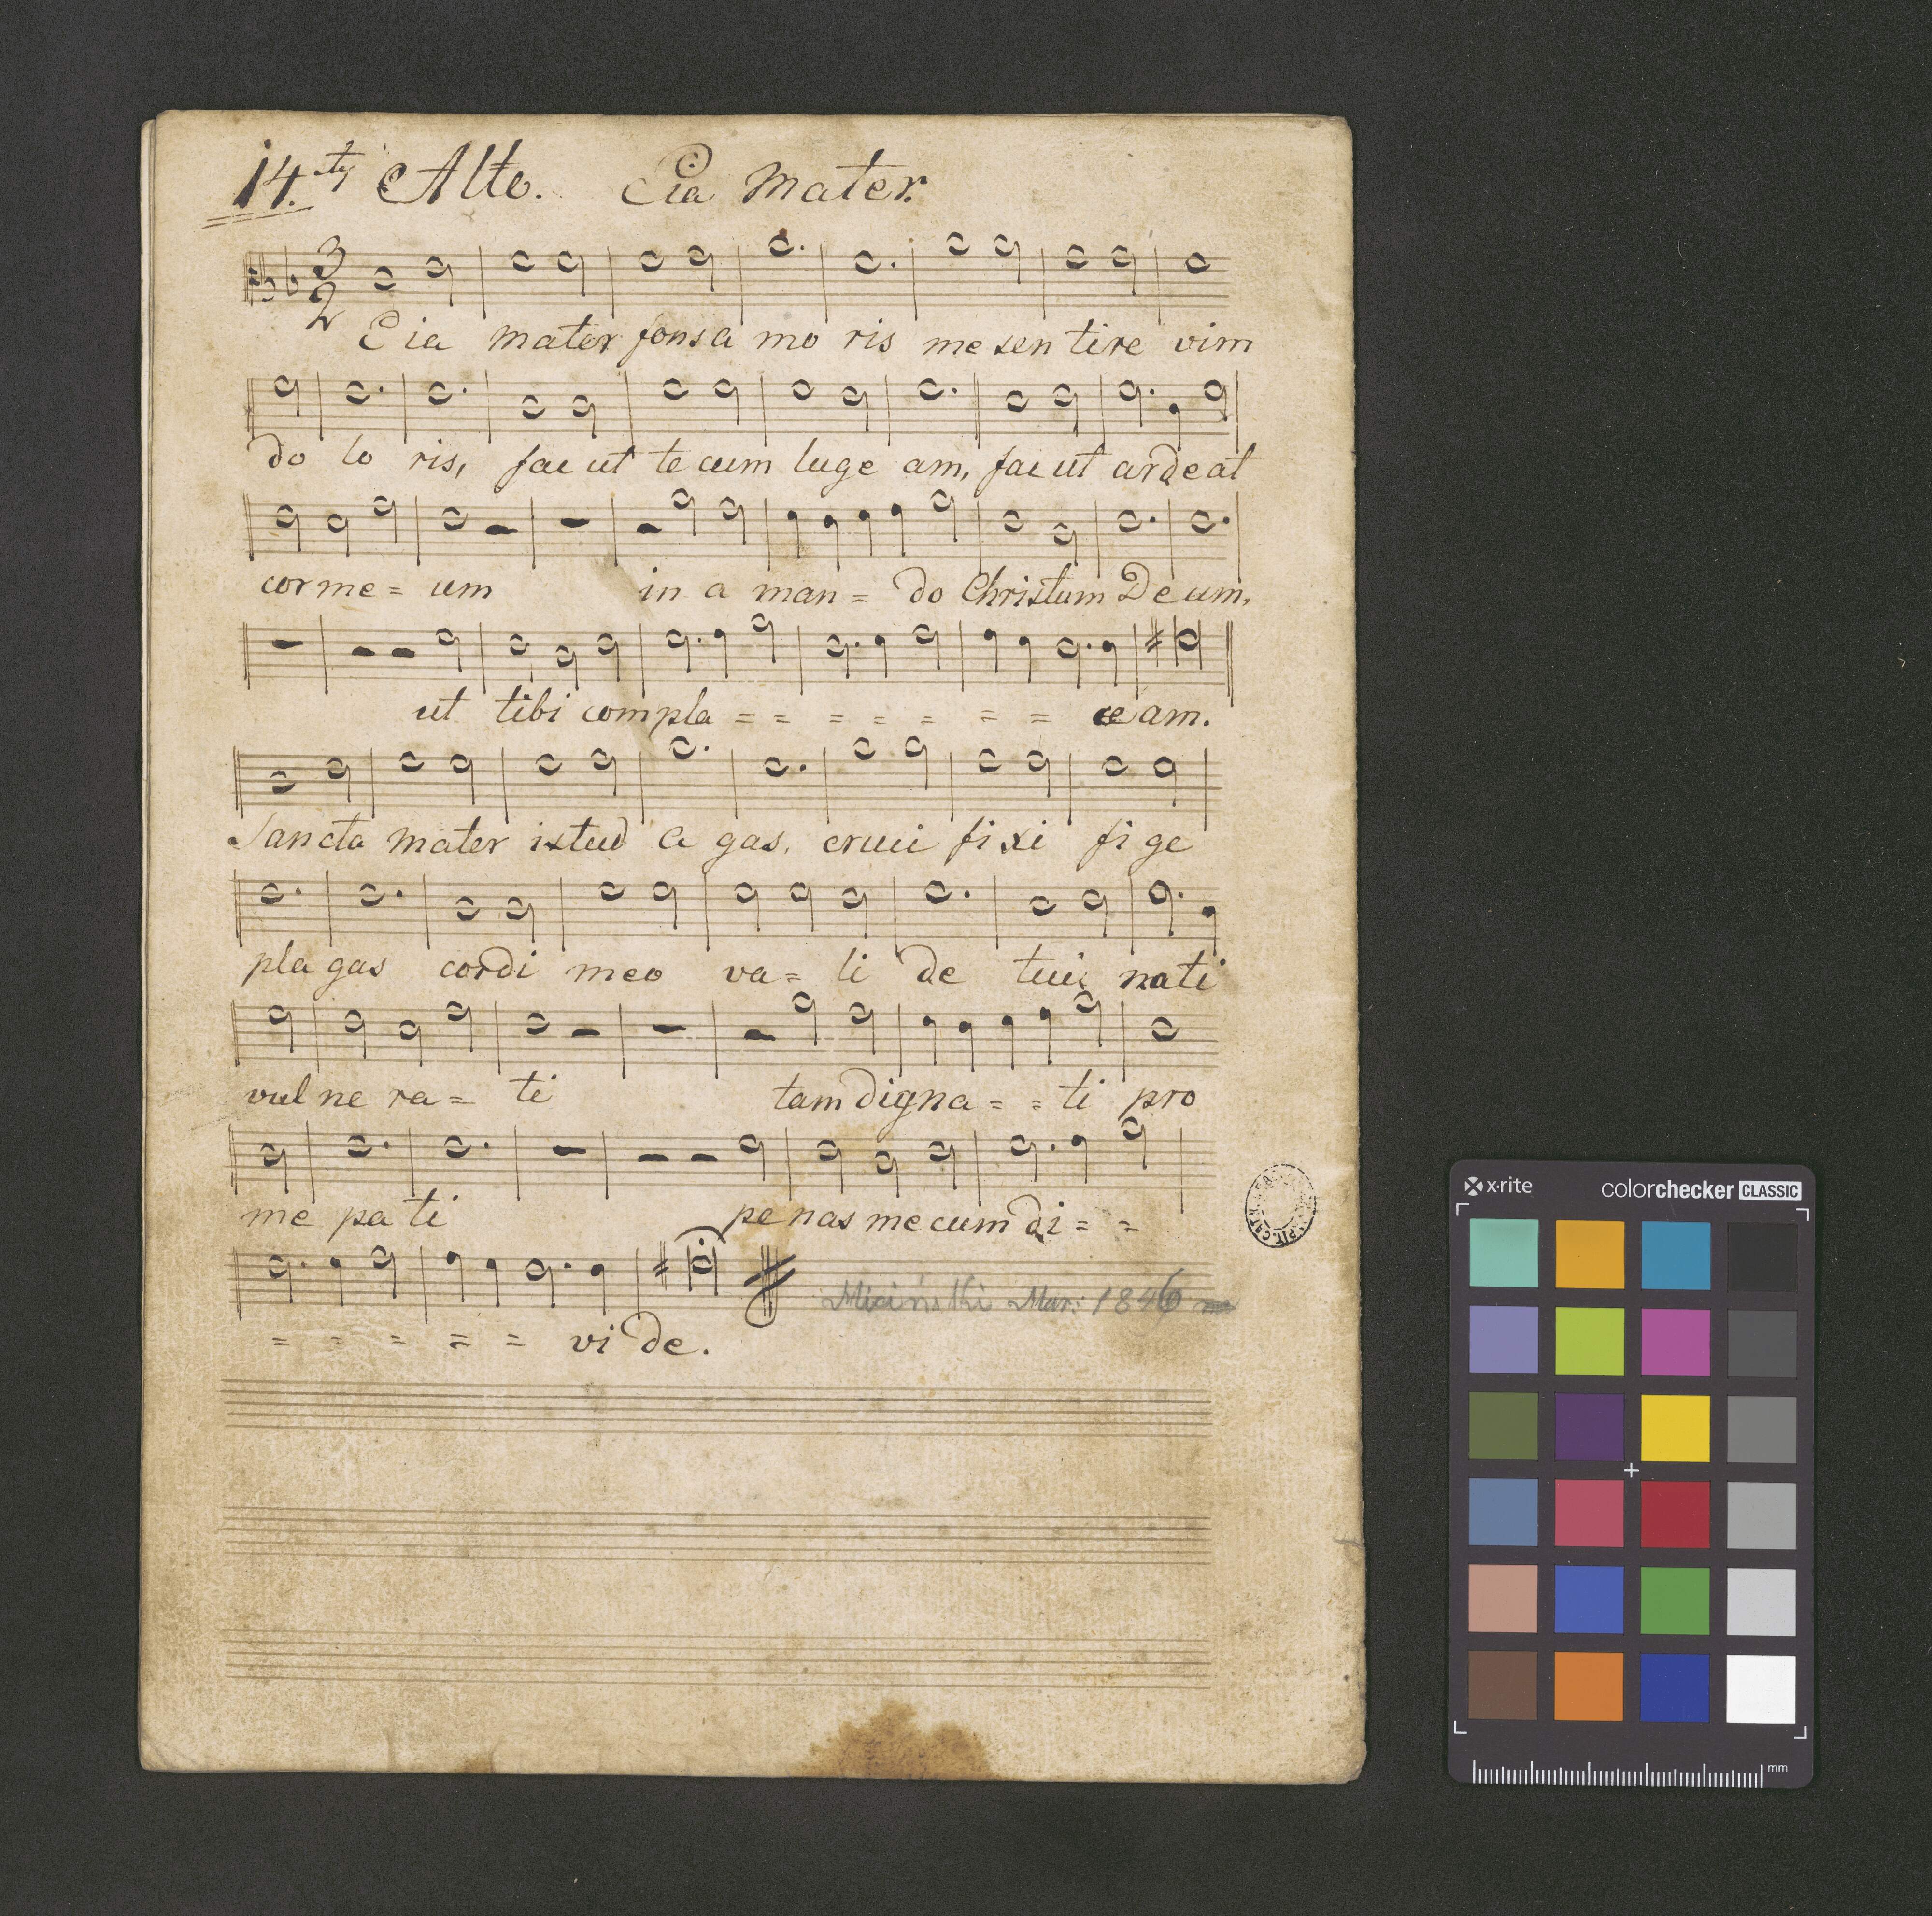 14.ty Alto. Eia Mater.
3
2
Eia mater fons a mo ris me sen tire vim
do lo ris, fac ut te cum luge am, fac ut ardeat
cor me = um in a man = do Christum Deum,
ut tibi compla = = = = = = = ce am.
Sancta Mater istud a gas, cruci fi xi fi ge
pla gas cordi meo va = li de tui nati
vul ne ra = ti tam digna = = ti pro
me pa ti pe nas me cum di = =
Miciński Mar: 1846
= = = = = vi de.
x·rite colorchecker CLASSIC
mm